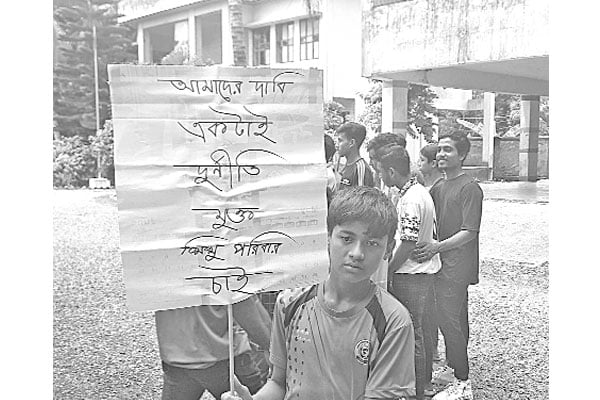 আমাদের দাবি
একটাই
দুর্নীতি
মুক্ত
শিশু পরিবার
চাই